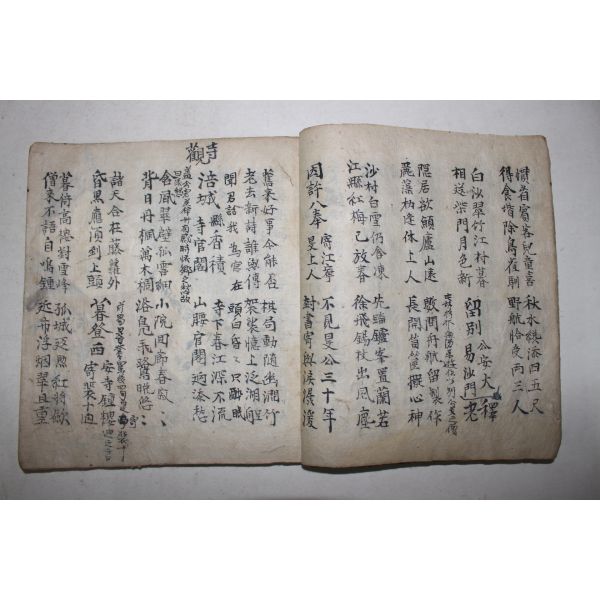 慣看賓客兒童喜
得食階除鳥雀馴
秋水纔添四五尺
野航恰受兩三人
白沙翠竹江村暮
相送柴門月色新
釋老
留別公安大易沙門
隱居欲
廬山遠
麗藻初逢休上人
數問舟航留製作
長開
擬心神
沙村白雪仍含凍
江縣紅梅已放春
先踏爐峯置蘭若
徐飛錫杖出風塵
因許八奉寄江寧旻上人
不見旻公三十年
封書寄與淚潺湲
舊來好事今能否
老去新詩誰與傳
棋局動隨幽澗竹
袈裟憶上泛湖船
聞君話我爲官在
頭白昏昏只醉眠
寺觀
涪城縣香積寺官閣
寺下春江深不流
山腰官閣迥添愁
含風翠壁孤雲細
背日丹楓萬木稠
小院回廊春寂〻
浴鳧飛鷺晚悠〻
諸天合在藤蘿外
昏黑應須到上頭
暮登西安寺鐘樓寄裴十迪
暮倚高樓對雪峰
僧來不語自鳴鍾
孤城返照紅將斂
近市浮烟翠且重